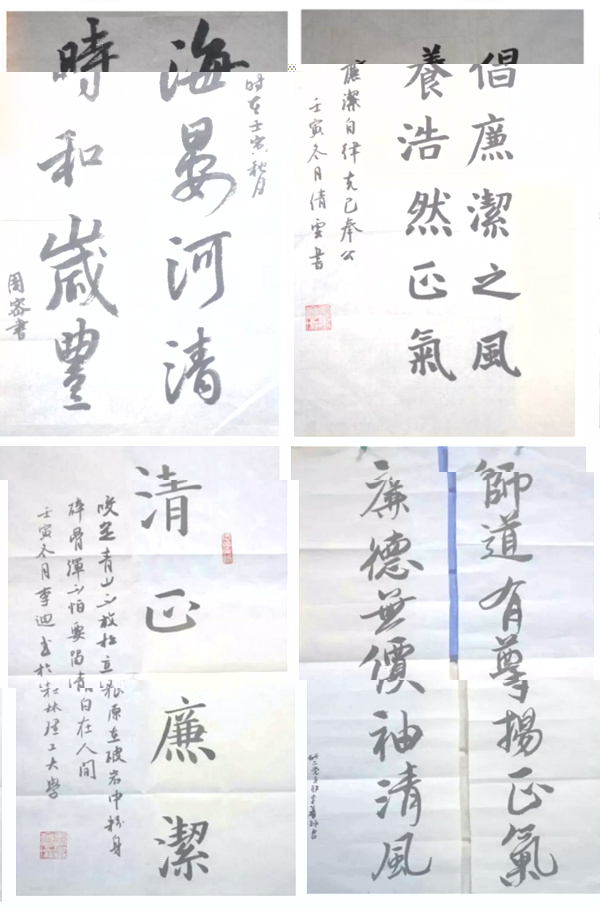 时在壬寅秋月
海晏河清
時和歲豐
周密書
倡廉潔之風
養浩然正氣
廉潔自律克己奉公
壬寅冬月倩雲書
清正廉潔
咬定青山不放松立根原在破岩中粉身
碎骨渾不怕要留清白在人間
壬寅冬月李迪書於林理工大學
師道有尊揚正氣
廉德無價袖清風